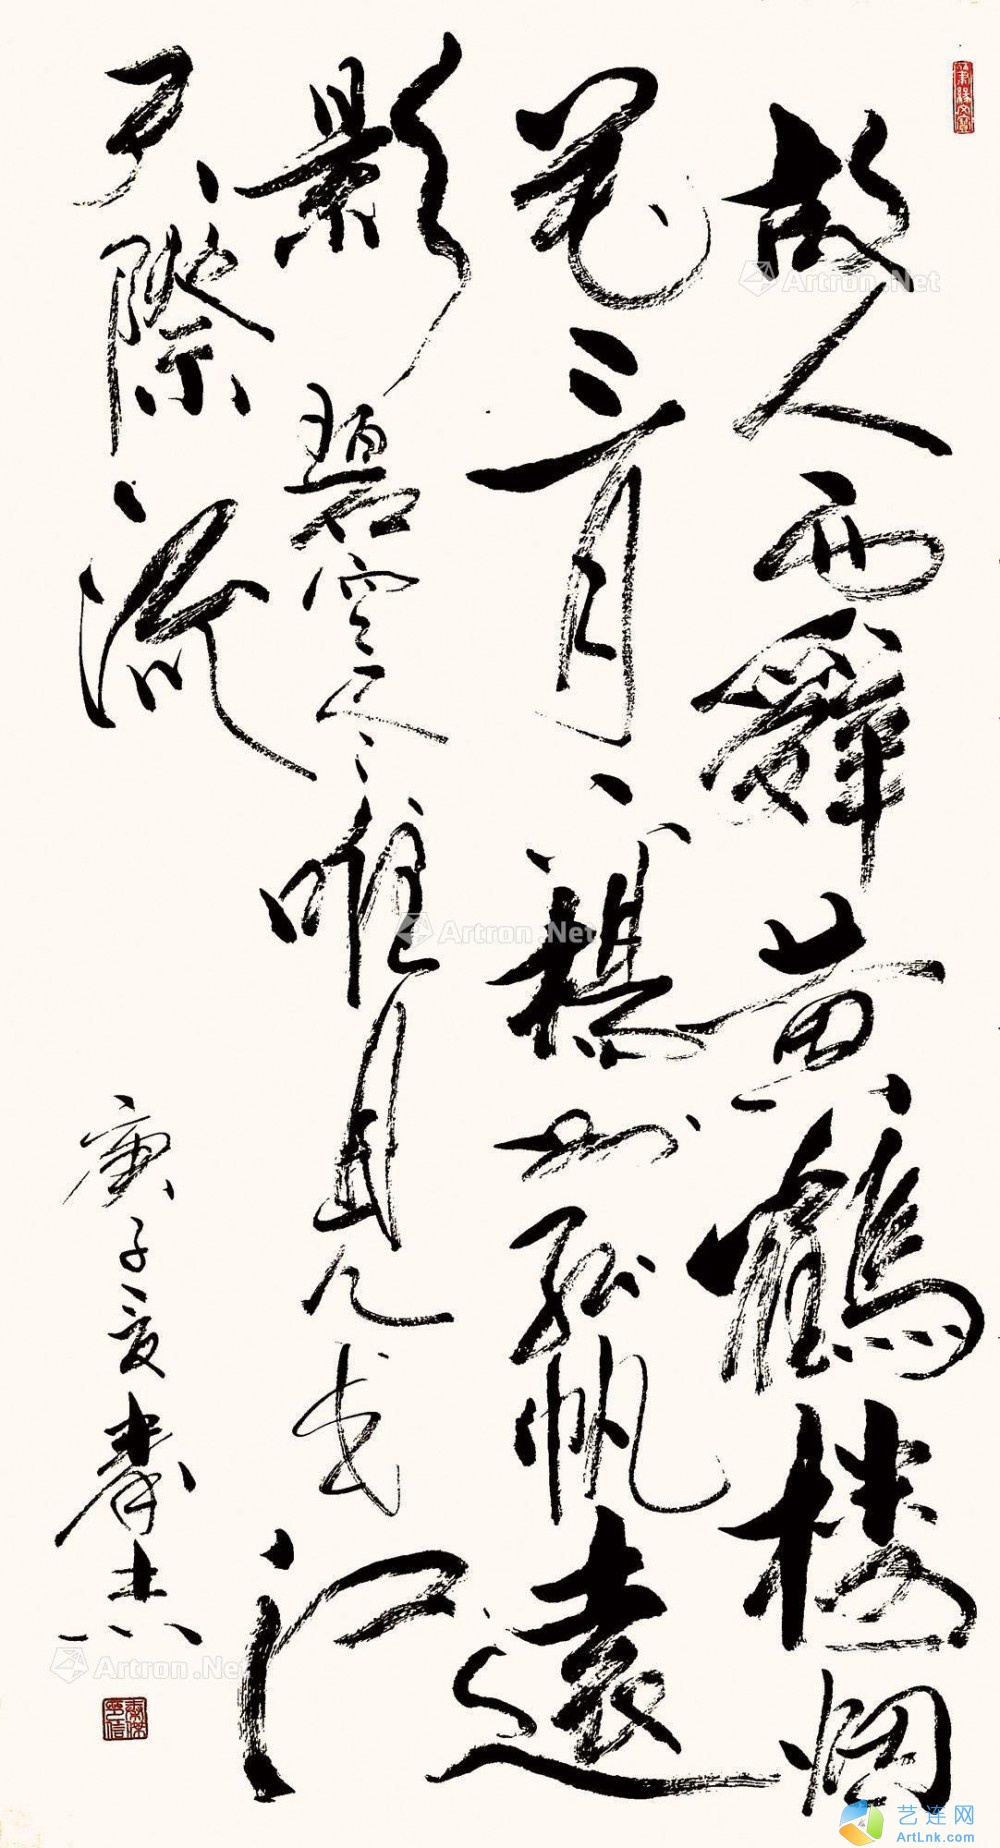 故人西辭黄鶴楼烟
花三月下楊州孤帆遠
影碧空尽唯見长江
天際流
庚子夏
Artron.Net
Artron.Net
Artron.Net
艺连网
ArtLnk.com